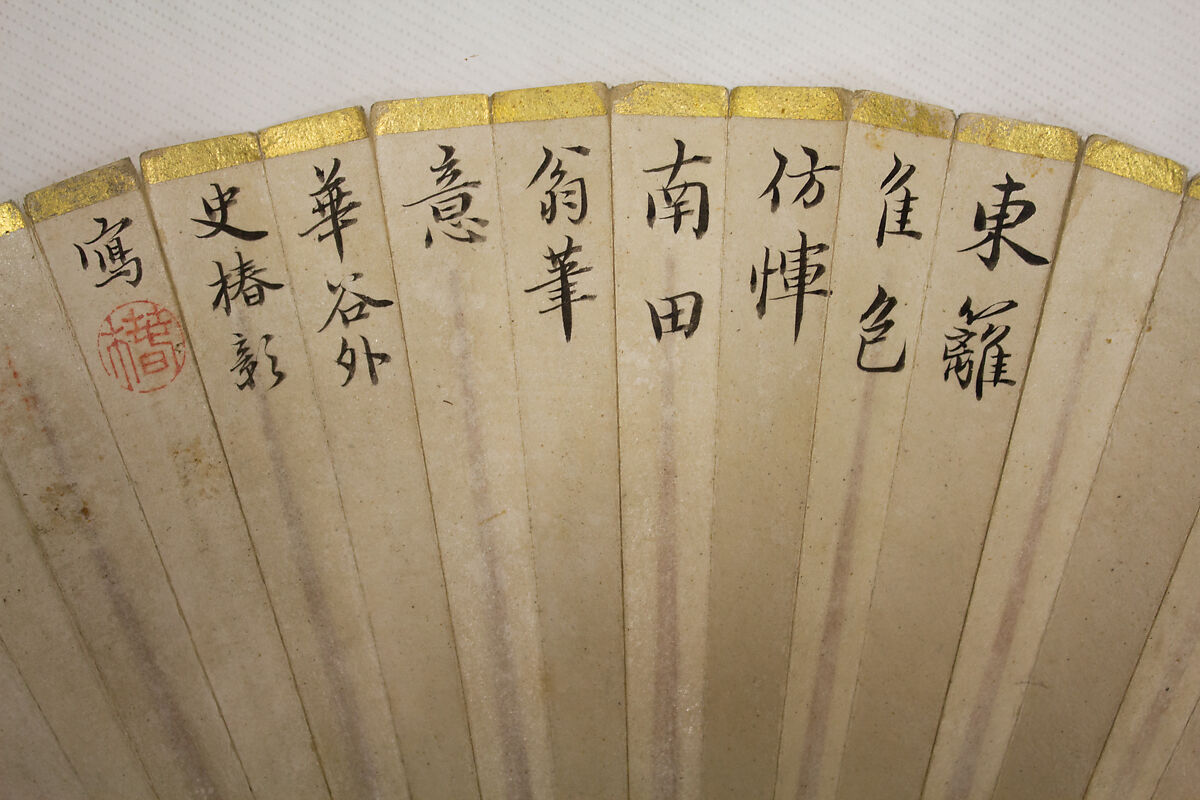 東籬
佳色
仿惲
南田
翁筆
意
華谷外
史椿彰
寫